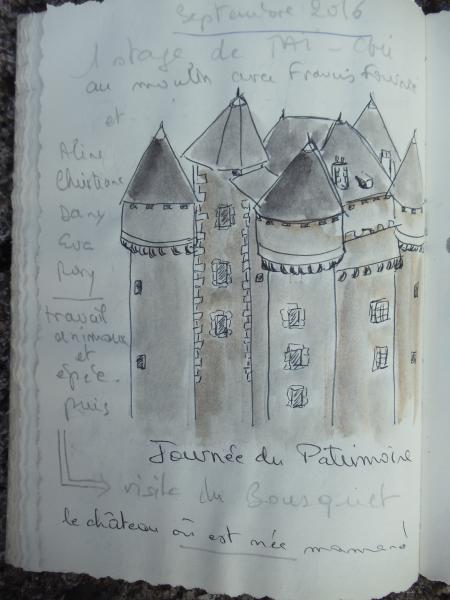 Septembre 2016
1 stage de TAI-Chi
au moulin avec Francis
et
Aline
Christiane
Dany
Eva
Rory
travail
animaux
et
épée.
puis
Journée du Patrimoine
visite du Bousquet
le château où est née maman!